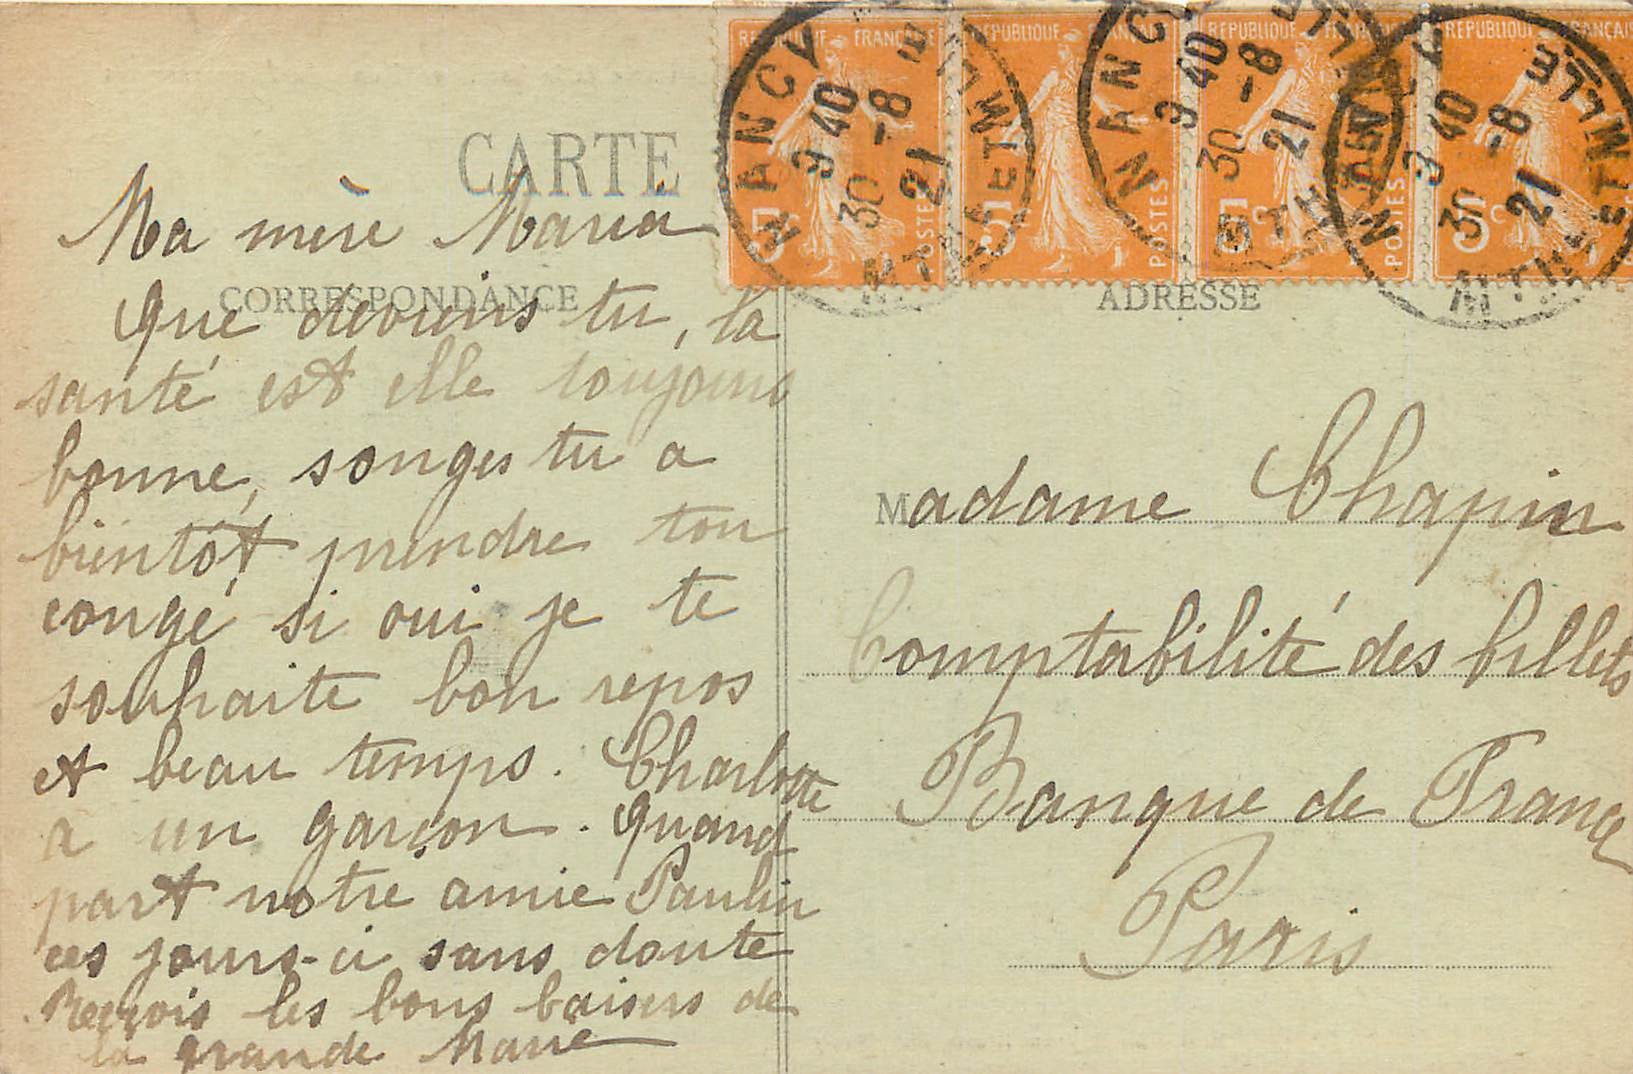 CARTE
CORRESPONDANCE
Ma mère Maria
Que deviens tu, la
santé est elle toujours
bonne, songes tu a
bientôt prendre ton
congé si oui je te
souhaite bon repos
et beau temps. Charlotte
a un garçon. Quand
part notre amie Paulin
ces jours-ci sans doute
Reçois les bons baisers de
la grande Marie
REPUBLIQUE FRANÇAISE
5c POSTES
REPUBLIQUE
5 POSTES
REPUBLIQUE
5c POSTES
REPUBLIQUE FRANÇAISE
5c
NANCY
9 40
30 -8
21
NANCY
9 40
30 -8
21
9 40
30 -8
21
ADRESSE
Madame Chapin
Comptabilité des billets
Banque de France
Paris